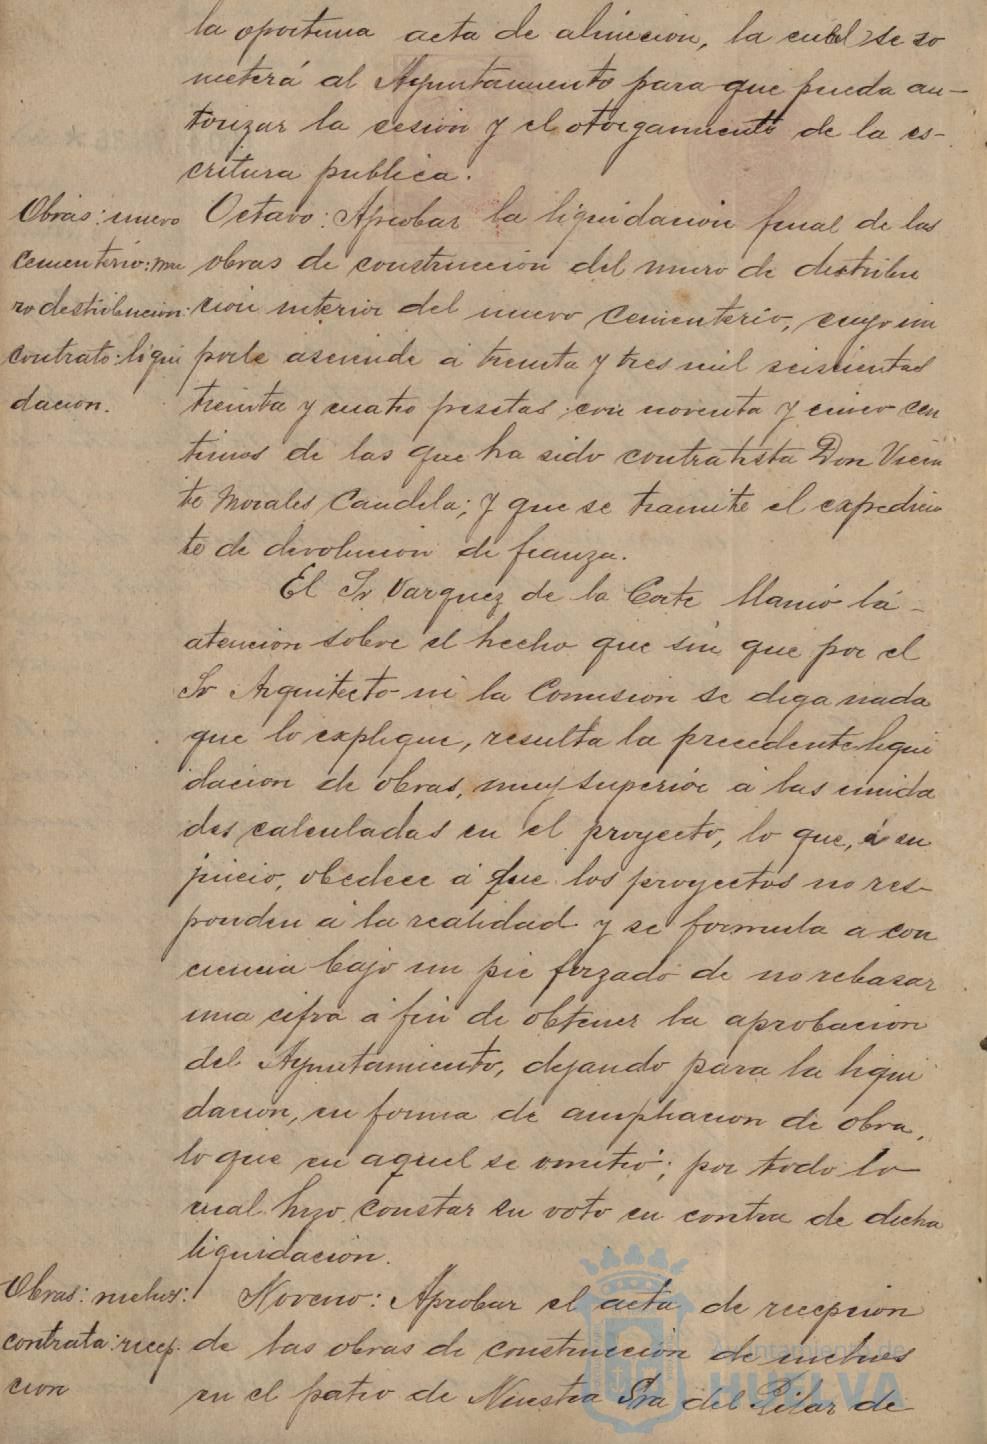 la oportuna acta de alineacion, la cual se so
meterá al Ayuntamiento para que pueda au-
torizar la cesion y el otorgamiento de la es-
critura publica.
Obras: nuevo
cementerio: mu
ro destribucion:
contrato: liqui
dacion.
Octavo: Aprobar la liquidación final de las
obras de construccion del muro de distribu
ción interior del nuevo Cementerio, cuyo im
porte asciende á treinta y tres mil seiscientas
treinta y cuatro pesetas con noventa y cinco cen
timos de las que ha sido contratista Don Vicen
te Morales Candela; y que se tramite el expedien
te de devolucion de fianza.
El Sr Vazquez de la Corte llamó la
atencion sobre el hecho que sin que por el
Sr Arquitecto ni la Comision se diga nada
que lo explique, resulta la precedente liqui
dacion de obras, muy superior á las unida
des calculadas en el proyecto, lo que, á su
juicio, obedece á que los proyectos no res-
ponden á la realidad y se formula a con
ciencia bajo un pie forzado de no rebasar
una cifra á fin de obtener la aprobacion
del Ayuntamiento, dejando para la liqui
dacion, en forma de ampliacion de obra,
lo que en aquel se omitió; por todo lo
cual hizo constar su voto en contra de dicha
liquidación.
Obras: nichos:
contrata: recep
cion
Noveno: Aprobar el acta de recepcion
de las obras de construcción de nichos
en el patio de Nuestra Sra del Pilar de
Ayuntamiento de
HUELVA